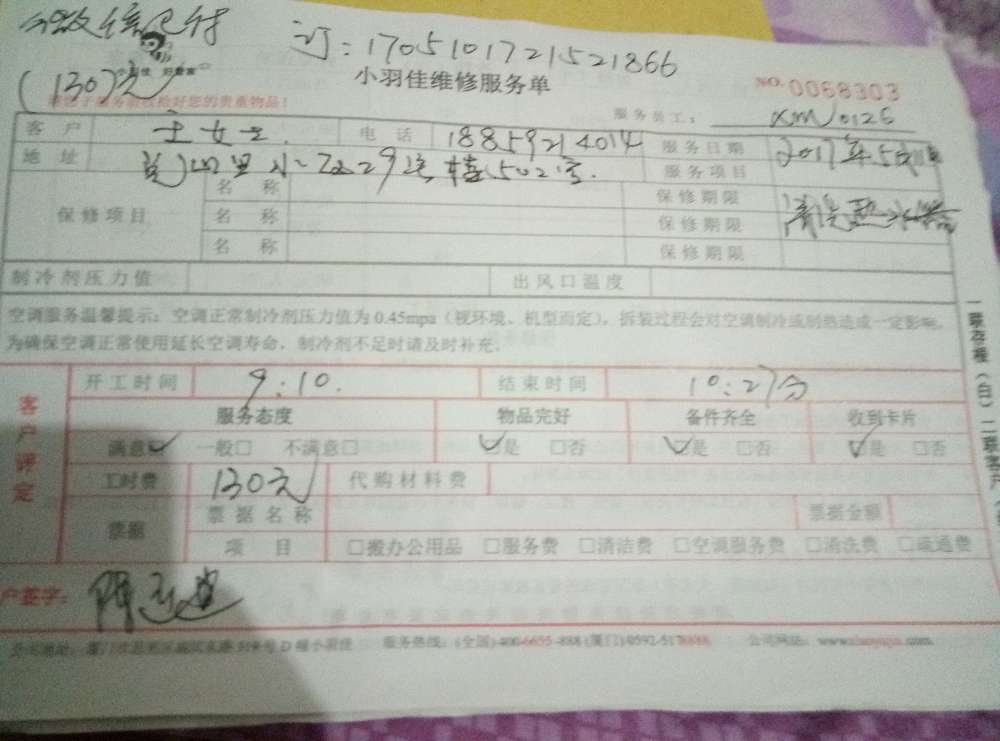 微信已付
订:1705101721521866
(130)元
小羽佳维修服务单
NO.0068303
服务员工: XM0126
客户 王女士 电话 18859214014 服务日期 2017年5
地址 29 楼502室. 服务项目 清洗热水器
保修项目 名称 保修期限
名称 保修期限
名称 保修期限
制冷剂压力值 出风口温度
空调服务温馨提示:空调正常制冷剂压力值为0.45mpa(视环境、机型而定),拆装过程会对空调制冷或制热造成一定影响,
为确保空调正常使用延长空调寿命,制冷剂不足时请及时补充.
客户评定
开工时间 9:10. 结束时间 10:27分
服务态度 物品完好 备件齐全 收到卡片
满意☑ 一般□ 不满意□ ☑是 □否 ☑是 □否 ☑是 □否
工时费 130元 代购材料费
票据 票据名称 票据金额
项目 □搬办公用品 □服务费 □清洁费 □空调服务费 □清洗费 □疏通费
户签字:
服务热线:(全国)400-6655-888 (厦门)0592-5178888 公司网站:
一联存根(白)二联客户